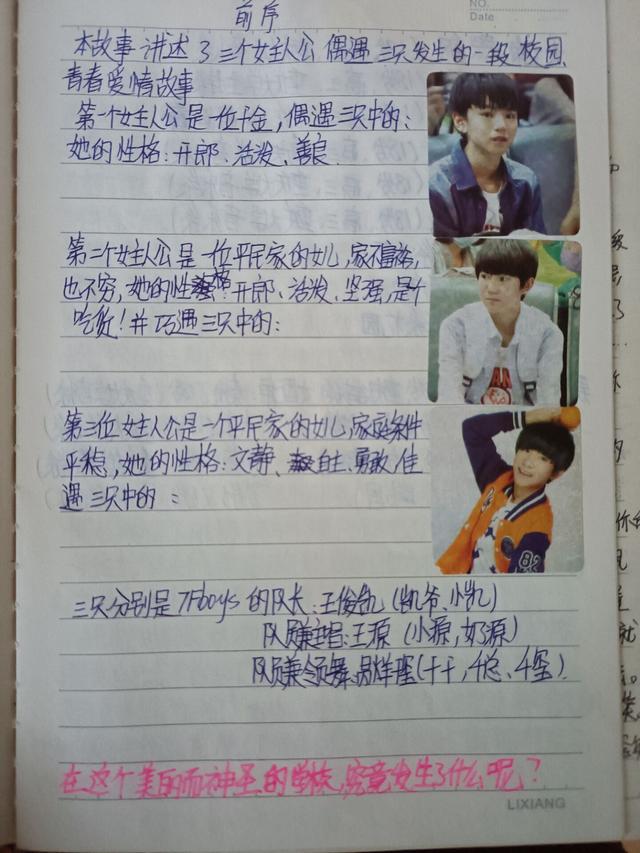 前序
NO.
Date
本故事讲述了三个女主人公偶遇三只发生的一段校园
青春爱情故事
第一个女主人公是一位千金,偶遇三只中的:
她的性格:开郎、活泼、善良
第二个女主人公是一位平民家的女儿,家不富裕,
也不穷,她的性格:开郎、活泼、坚强,是个
吃货!并巧遇三只中的:
第三位女主人公是一个平民家的女儿,家庭条件
平稳,她的性格:文静、自主、勇敢,佳
遇三只中的:
三只分别是TFboys的队长:王俊凯(凯爷、小凯)
队员兼主唱:王源(小源,奶源)
队员兼领舞:易烊千玺(千千、千总、千玺)
在这个美的而神圣的学校,究竟发生了什么呢?
LIXIANG